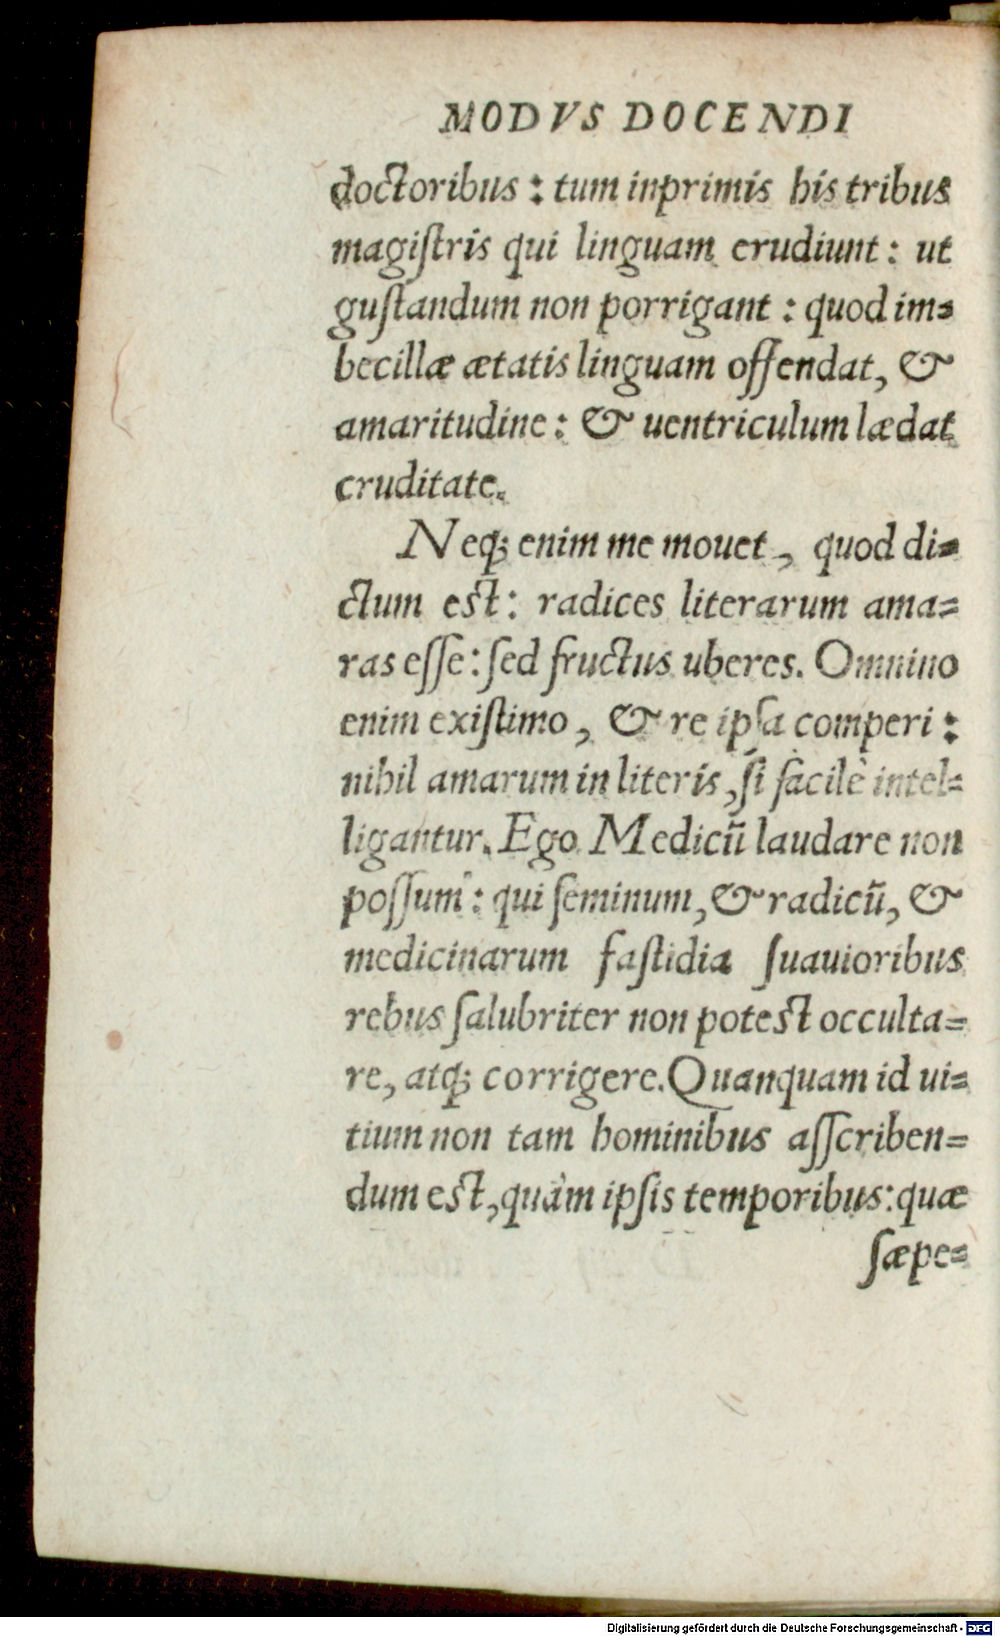 MODVS DOCENDI
doctoribus: tum inprimis his tribus
magiſtris qui linguam erudiunt: ut
guſtandum non porrigant: quod im=
becillæ ætatis linguam offendat, &
amaritudine: & uentriculum lædat
cruditate.
Neqꝫ enim me mouet, quod di=
ctum est: radices literarum ama=
ras eſſe: ſed fructus uberes. Omnino
enim exiſtimo, & re ipſa comperi:
nihil amarum in literis, ſi facilè intel=
ligantur. Ego Medicũ laudare non
poſſum: qui ſeminum, & radicũ, &
medicinarum faſtidia ſuauioribus
rebus ſalubriter non potest occulta=
re, atqꝫ corrigere. Quanquam id ui=
tium non tam hominibus aſſcriben=
dum est, quàm ipſis temporibus: quæ
ſæpe=
Digitalisierung gefördert durch die Deutsche Forschungsgemeinschaft - DFG